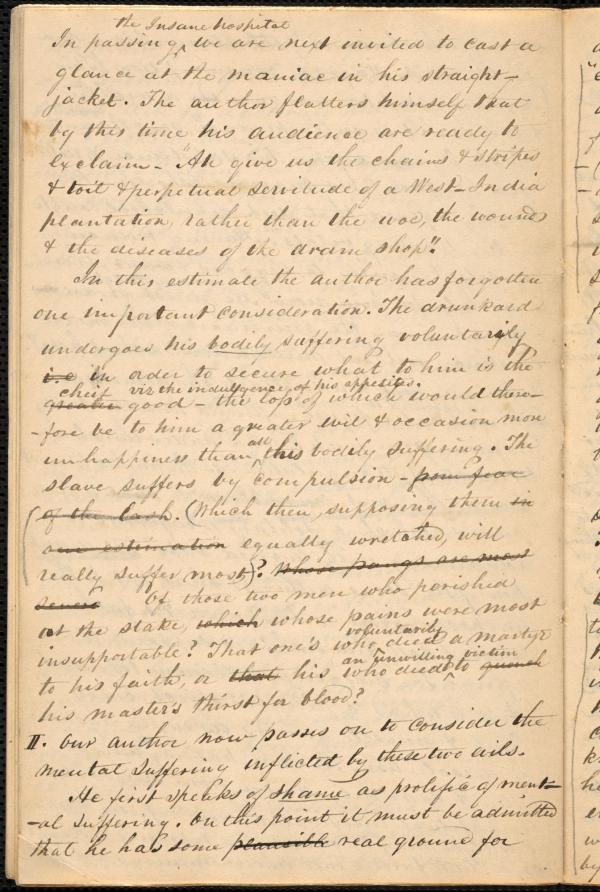 the Insane hospital
In passing, we are next invited to cast a
glance at the maniac in his straight-
jacket. The author flatters himself that
by this time his audience are ready to
exclaim - "Ah give us the chains & stripes
& toil & perpetual servitude of a West-India
plantation, rather than the woe, the wounds
& the diseases of the dram shop".
In this estimate the author has forgotten
one important consideration. The drunkard
undergoes his bodily suffering voluntarily
i.e in order to secure what to him is the
chief viz the indulgence of his appetites.
greater good - the loss of which would there-
-fore be to him a greater evil & occasion more
all
unhappiness than this bodily suffering. The
slave suffers by compulsion - from fear
of the lash. (Which then, supposing them in
our estimation equally wretched, will
really suffer most)? Whose pangs are most
severe Of those two men who perished
at the stake, which whose pains were most
voluntarily
insupportable? That one's who died a martyr
an unwilling victim
to his faith, or that his who died to quench
his master's thirst for blood?
II. Our author now passes on to consider the
mental suffering inflicted by these two evils.
He first speaks of shame as prolific of ment-
-al suffering. On this point it must be admitted
that he has some plausible real ground for